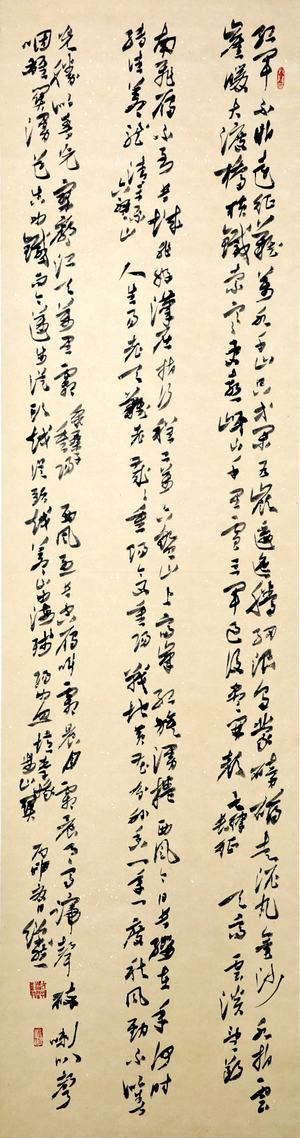 红军不怕远征難萬水千山只等闲五岭逶迤腾细浪乌蒙磅礴走泥丸金沙水拍云
崖暖大渡橋横鐵索寒更喜岷山千里雪三军过后尽开颜 七律长征 天高云淡望断
南飞雁不到长城非好漢屈指行程二萬六盘山上高峰红旗漫捲西风今日长缨在手何时
缚住苍龙 清平乐六盘山 人生易老天難老歲歲重阳今又重阳战地黄花分外香一年一度秋风劲不似春
光勝似春光寥廓江天萬里霜 采桑子重阳 西风烈长空雁叫霜晨月霜晨月马蹄聲碎喇叭聲
咽雄关漫道真如鐵而今迈步从头越从头越苍山如海残阳如血 忆秦娥娄山关